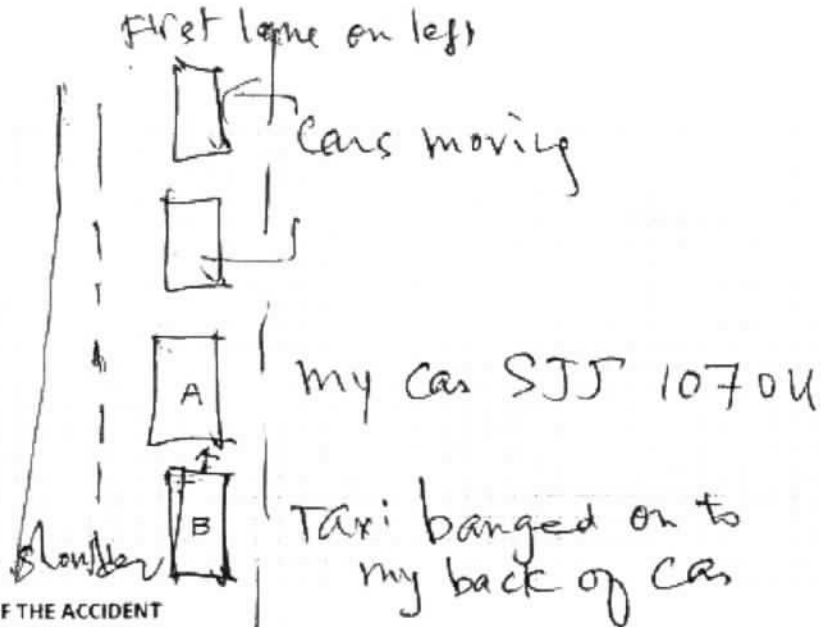 First lane on left
Cars moving
A
my car SJJ 1070U
B
Taxi banged on to
my back of car
shoulder
F THE ACCIDENT